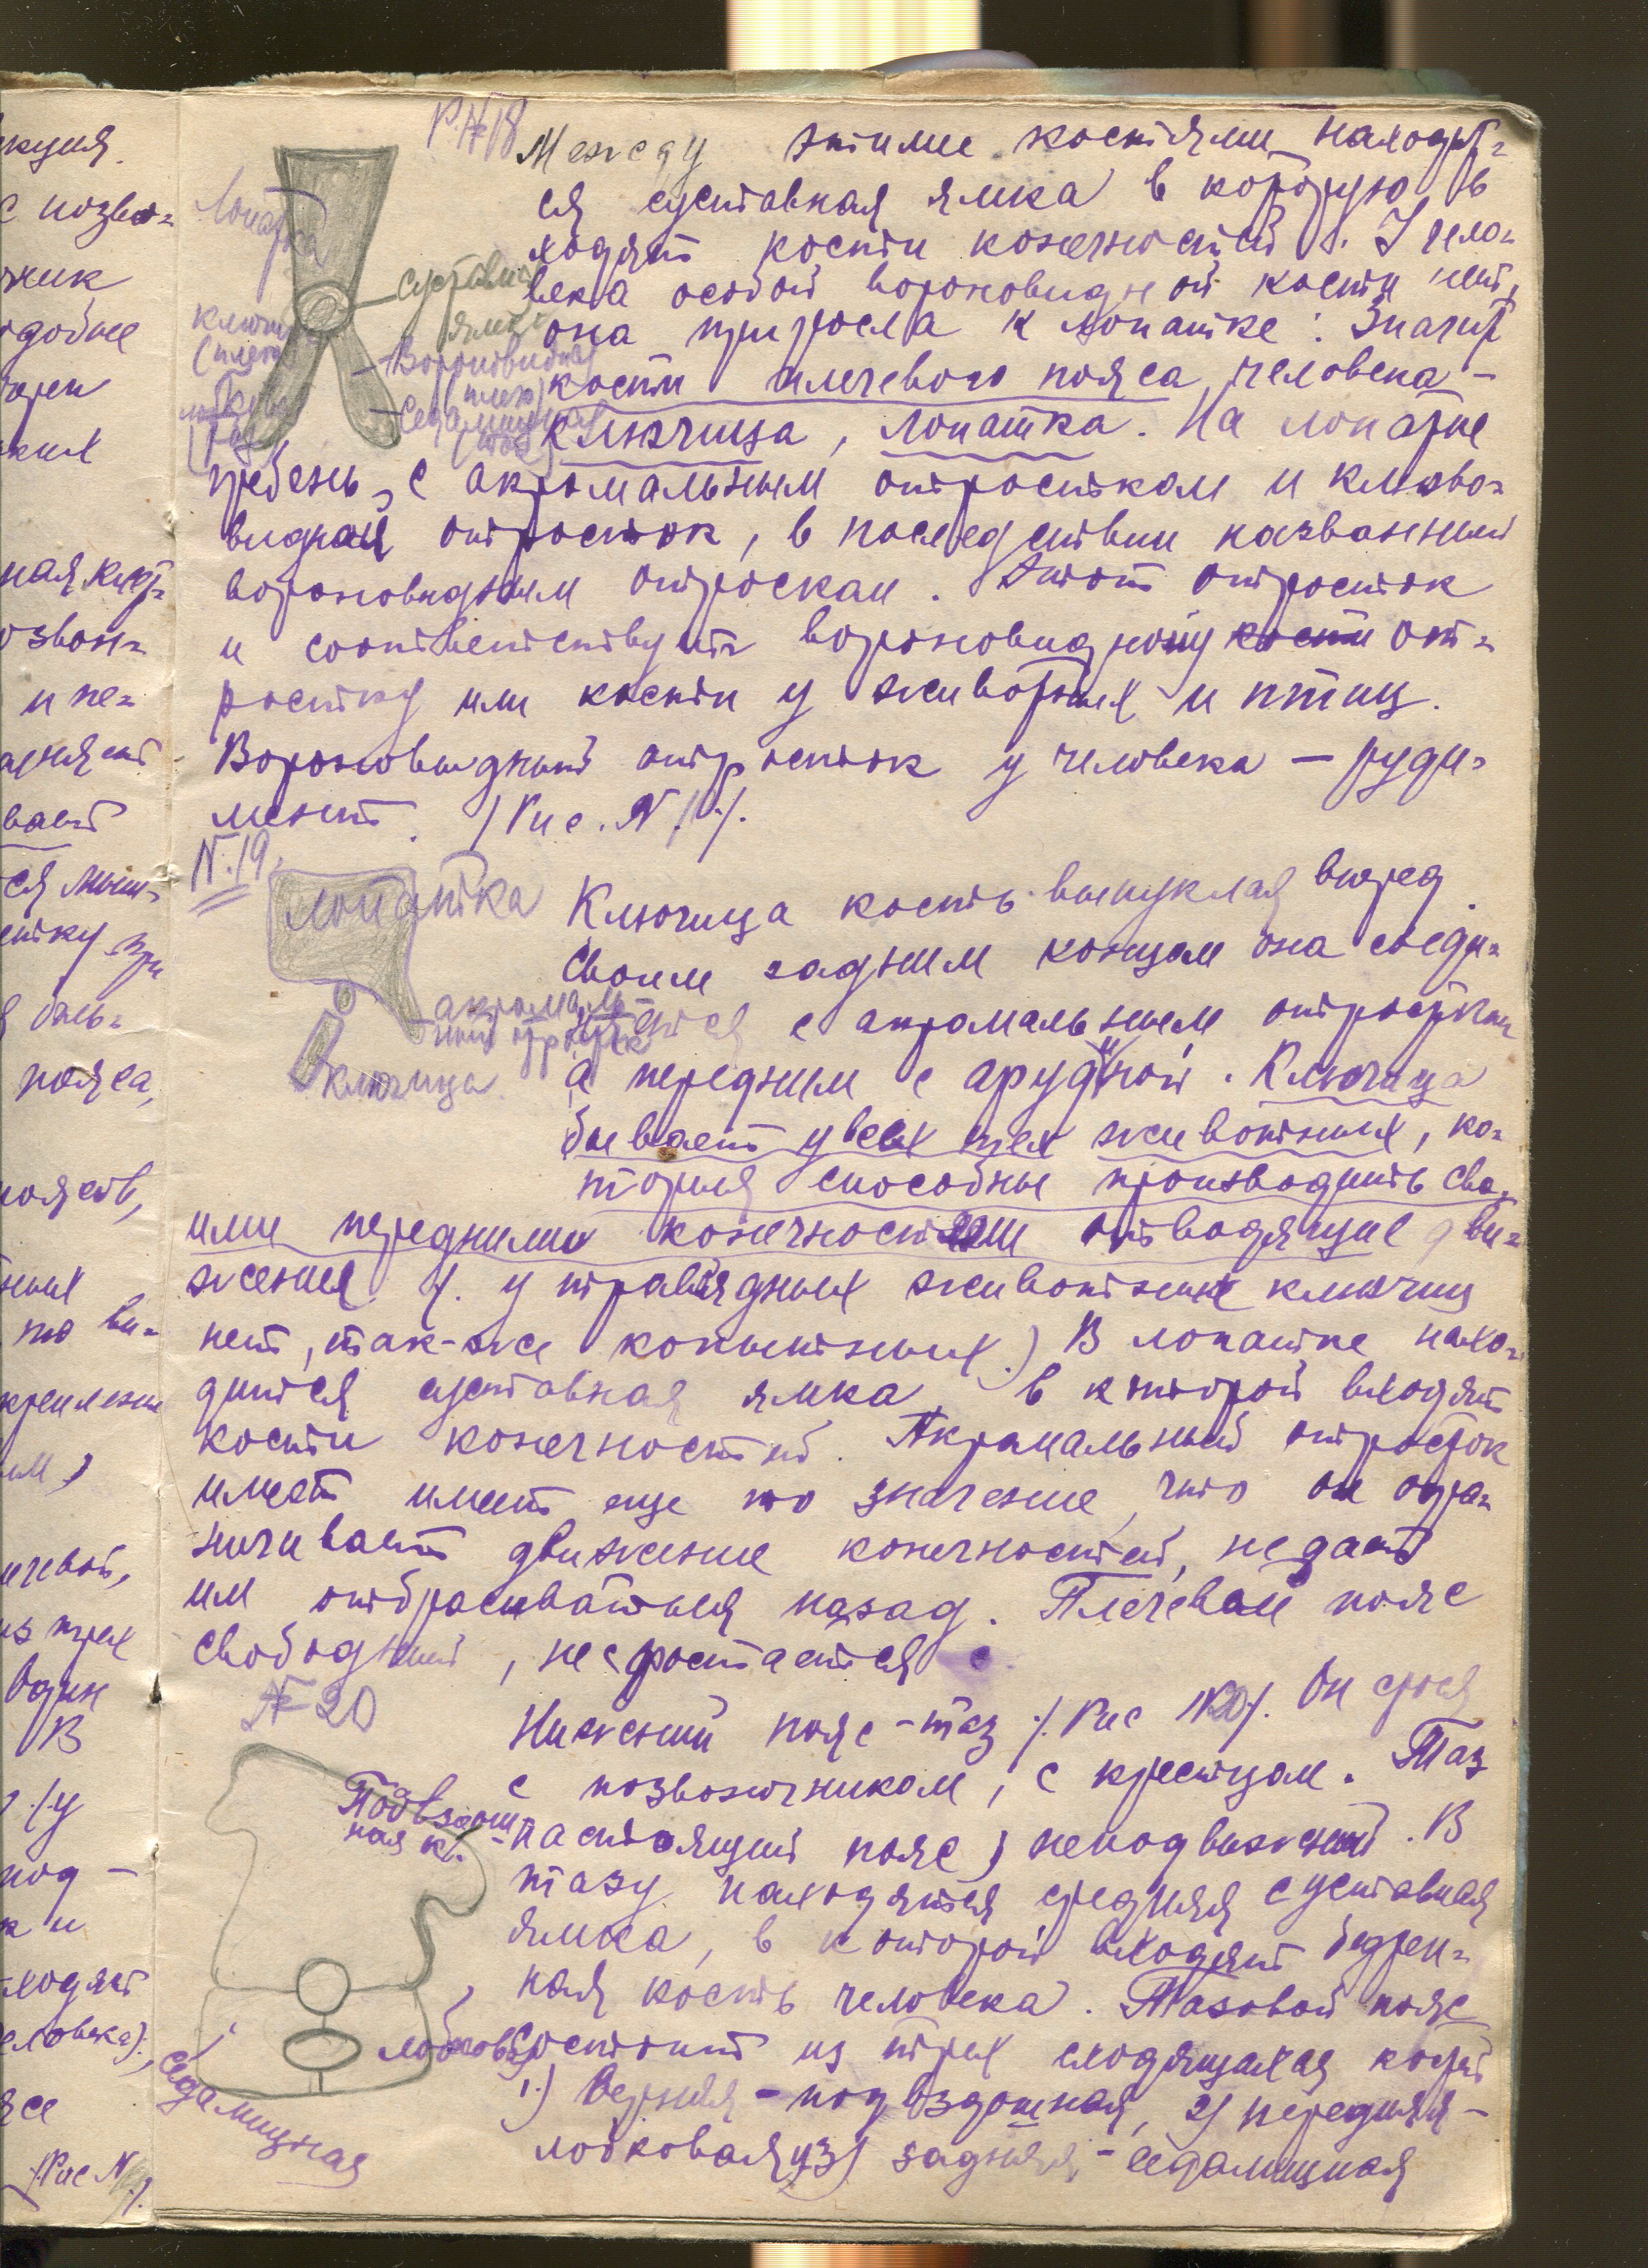 Р. № 18
Между этими костями находит-
ся суставная ямка в которую в
ходят кости конечностей. У чело-
века особой вороновидной кости нет,
она приросла к лопатке: Значит
кости плечевого пояса человека -
ключица, лопатка. На лопатке
гребень, с акромальным отростком и клюво-
видный отросток, в последствии названный
вороновидным отроскам. Этот отросток
и соответствует вороновидному кости от-
ростку или кости у животных и птиц.
Вороновидный отросток у человека - руди-
мент. /Рис. N /.
Лопатка
суставная
ямка
Вороновидная
(плечо)
Седалищная
(таз)
N. 19.
лопатка
акромаль-
ный отросток
ключица
Ключица кость выпуклая вперед.
Своим задним концом она соеди-
няется с акромальным отростком
а передним с грудиной. Ключица
бывает у всех тех животных, ко-
торыя способны производить сво-
ими передними конечностями отводящие дви-
жения /. у травоядных животных ключиц
нет, так-же копытных.) В лопатке нахо-
дится суставная ямка, в которой входят
кости конечностей. Акрамальный отросток
имеет имеет еще то значение, что он огра-
ничивает движение конечностей, не дает
им отбрасываться назад. Плечевой пояс
свободный, не сростается с
№ 20
Подвздош-
ная к.
лобковая
седалищная
Нижений пояс - таз /. Рис N20/. Он срося
с позвоночником, с крестцом. Таз
настоящий пояс, неподвижный. В
тазу находятся средняя суставная
ямка, в которой входят бедрен-
ная кость человека. Тазовой пояс
состоит из трех сходящихся костей
1.) верхняя - подвздошная, 2) передняя -
лобковая, и 3) задняя, - седалищная
кция.
с позво-
ник
одобне
ких
ная кост-
озвон-
и пе-
вает
ся мыш-
стку при
пояса,
поясов,
ных
то ви-
крепление
им,
ечевой,
из трех
Один
В
/.у
под -
к и
ходят
еловека).
/Рис N /.